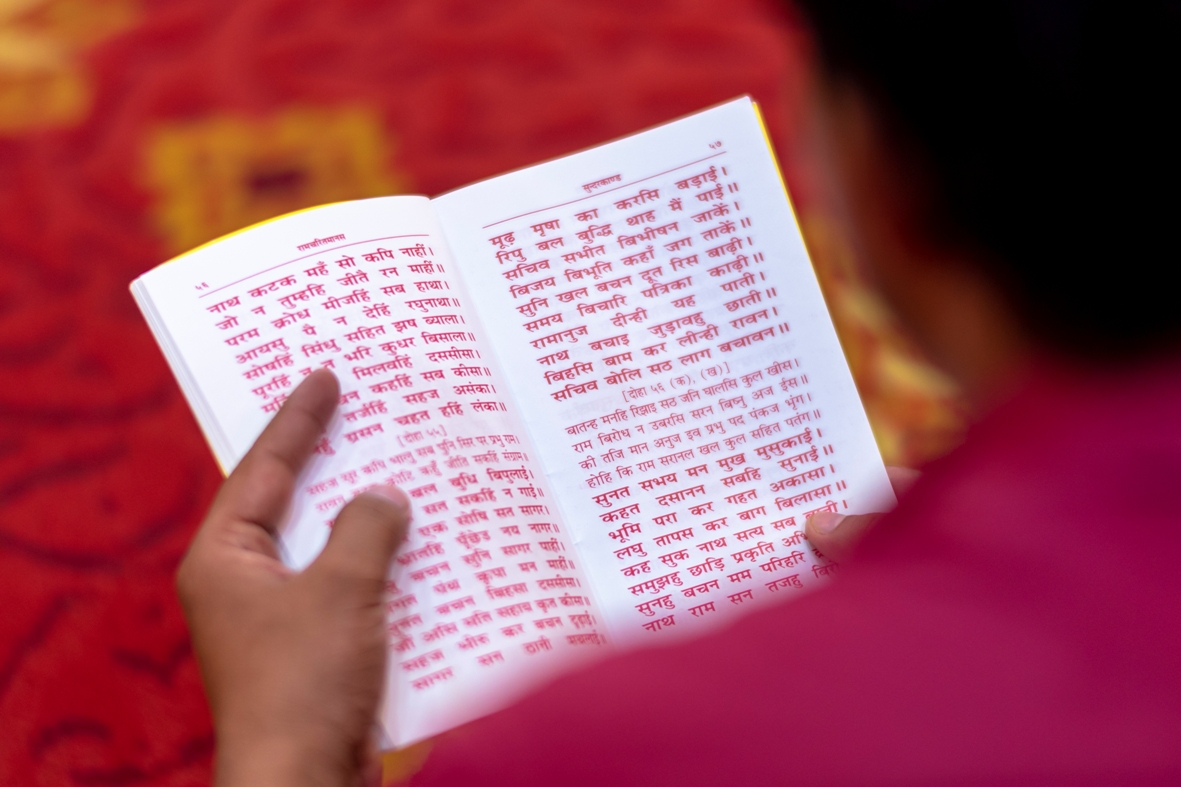 ५६
रामचरितमानस
नाथ कटक महँ सो कपि नाहीं।
जो न तुम्हहि जीतै रन माहीं॥
परम क्रोध मीजहिं सब हाथा।
आयसु पै न देहिं रघुनाथा॥
सोषहिं सिंधु सहित झष ब्याला।
पूरहिं न भरि कुधर बिसाला॥
मिलवहिं दससीसा।
कहहिं सब कीसा॥
सहज असंका।
ग्रसन चहत हहिं लंका॥
[दोहा ५५]
सहज सूर कपि भालु सब पुनि सिर पर प्रभु राम।
जीति सकहिं संग्राम॥
बल बुधि बिपुलाई।
सत सकहिं न गाई॥
एक सोषि सत सागर।
पूँछेउ नय नागर॥
बचन सुनि सागर पाहीं।
पंथ कृपा मन माहीं॥
सुनत बचन बिहसा दससीसा।
जौं असि मति सहाय कृत कीसा॥
सहज भीरु कर बचन दृढ़ाई।
सागर सन ठानी मचलाई॥
५७
सुन्दरकाण्ड
मूढ़ मृषा का करसि बड़ाई।
रिपु बल बुद्धि थाह मैं पाई॥
सचिव सभीत बिभीषन जाकें।
बिजय बिभूति कहाँ जग ताकें॥
सुनि खल बचन दूत रिस बाढ़ी।
समय बिचारि पत्रिका काढ़ी॥
रामानुज दीन्ही यह पाती।
नाथ बचाइ जुड़ावहु छाती॥
बिहसि बाम कर लीन्ही रावन।
सचिव बोलि सठ लाग बचावन॥
[दोहा ५६ (क), (ख)]
बातन्ह मनहि रिझाइ सठ जनि घालसि कुल खीस।
राम बिरोध न उबरसि सरन बिष्नु अज ईस॥
की तजि मान अनुज इव प्रभु पद पंकज भृंग।
होहि कि राम सरानल खल कुल सहित पतंग॥
सुनत सभय मन मुख मुसुकाई।
कहत दसानन सबहि सुनाई॥
भूमि परा कर गहत अकासा।
लघु तापस कर बाग बिलासा॥
कह सुक नाथ सत्य सब बानी।
समुझहु छाड़ि प्रकृति
सुनहु बचन मम परिहरि
नाथ राम सन तजहु